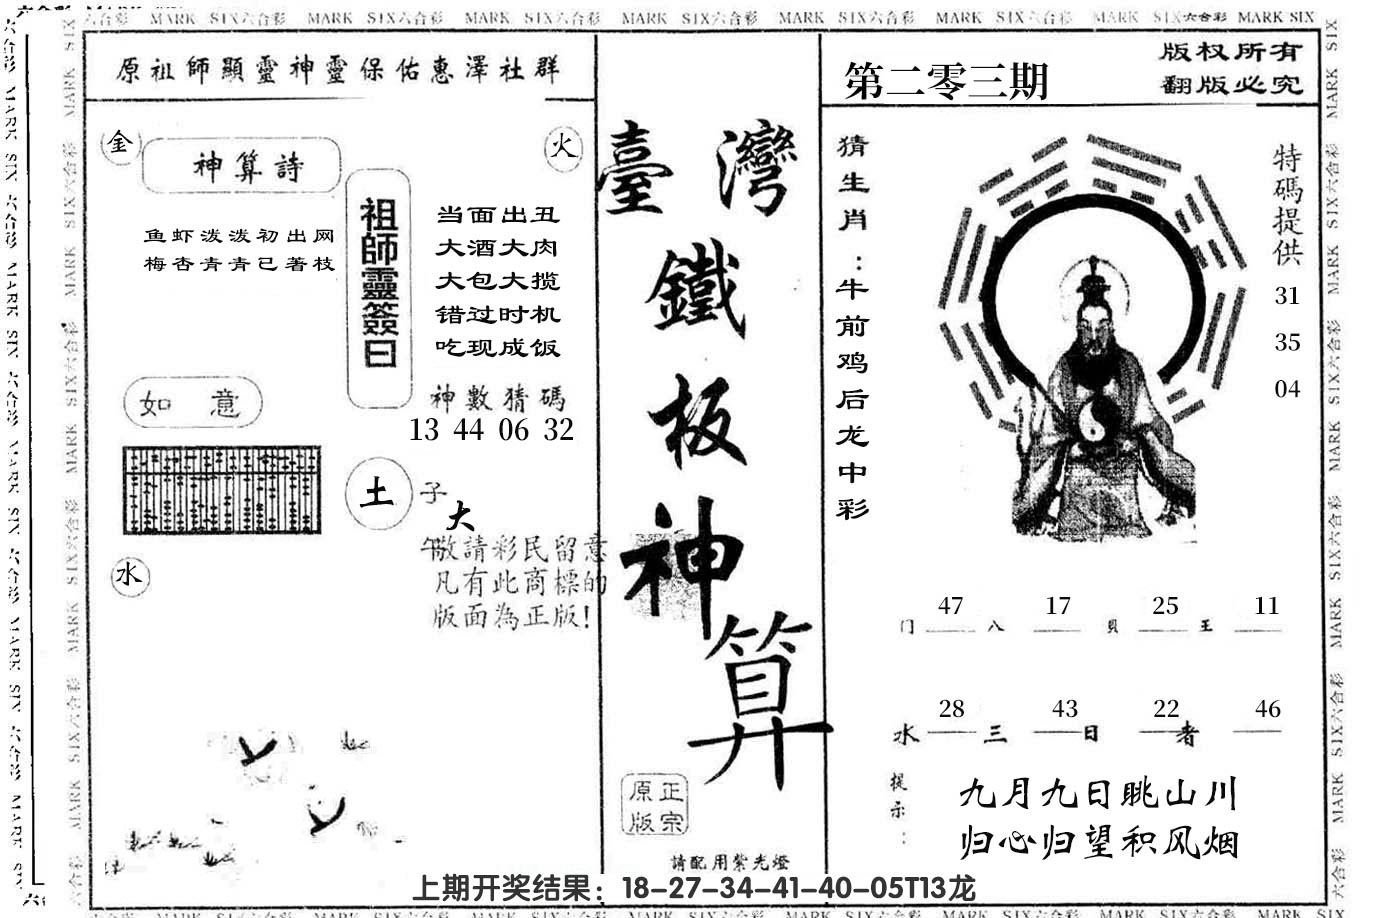 六合彩 MARK SIX六合彩 MARK SIX六合彩 MARK SIX六合彩 MARK SIX六合彩 MARK SIX六合彩 MARK SIX六合彩 MARK SIX六合彩 MARK SIX
原祖師顯靈神靈保佑惠澤社群
金
神算詩
火
鱼虾泼泼初出网
梅杏青青已著枝
祖師靈簽曰
当面出丑
大酒大肉
大包大揽
错过时机
吃现成饭
神數猜碼
13 44 06 32
如意
土
子
大
午
敬請彩民留意
凡有此商標的
版面為正版!
水
臺灣
鐵
板
神
算
原正
版宗
請配用紫光燈
第二零三期
版权所有
翻版必究
猜生肖:牛前鸡后龙中彩
特碼提供
31
35
04
47 17 25 11
门 八 貝 王
28 43 22 46
水 三 日 者
提示:
九月九日眺山川
归心归望积风烟
上期开奖结果：18-27-34-41-40-05T13龙